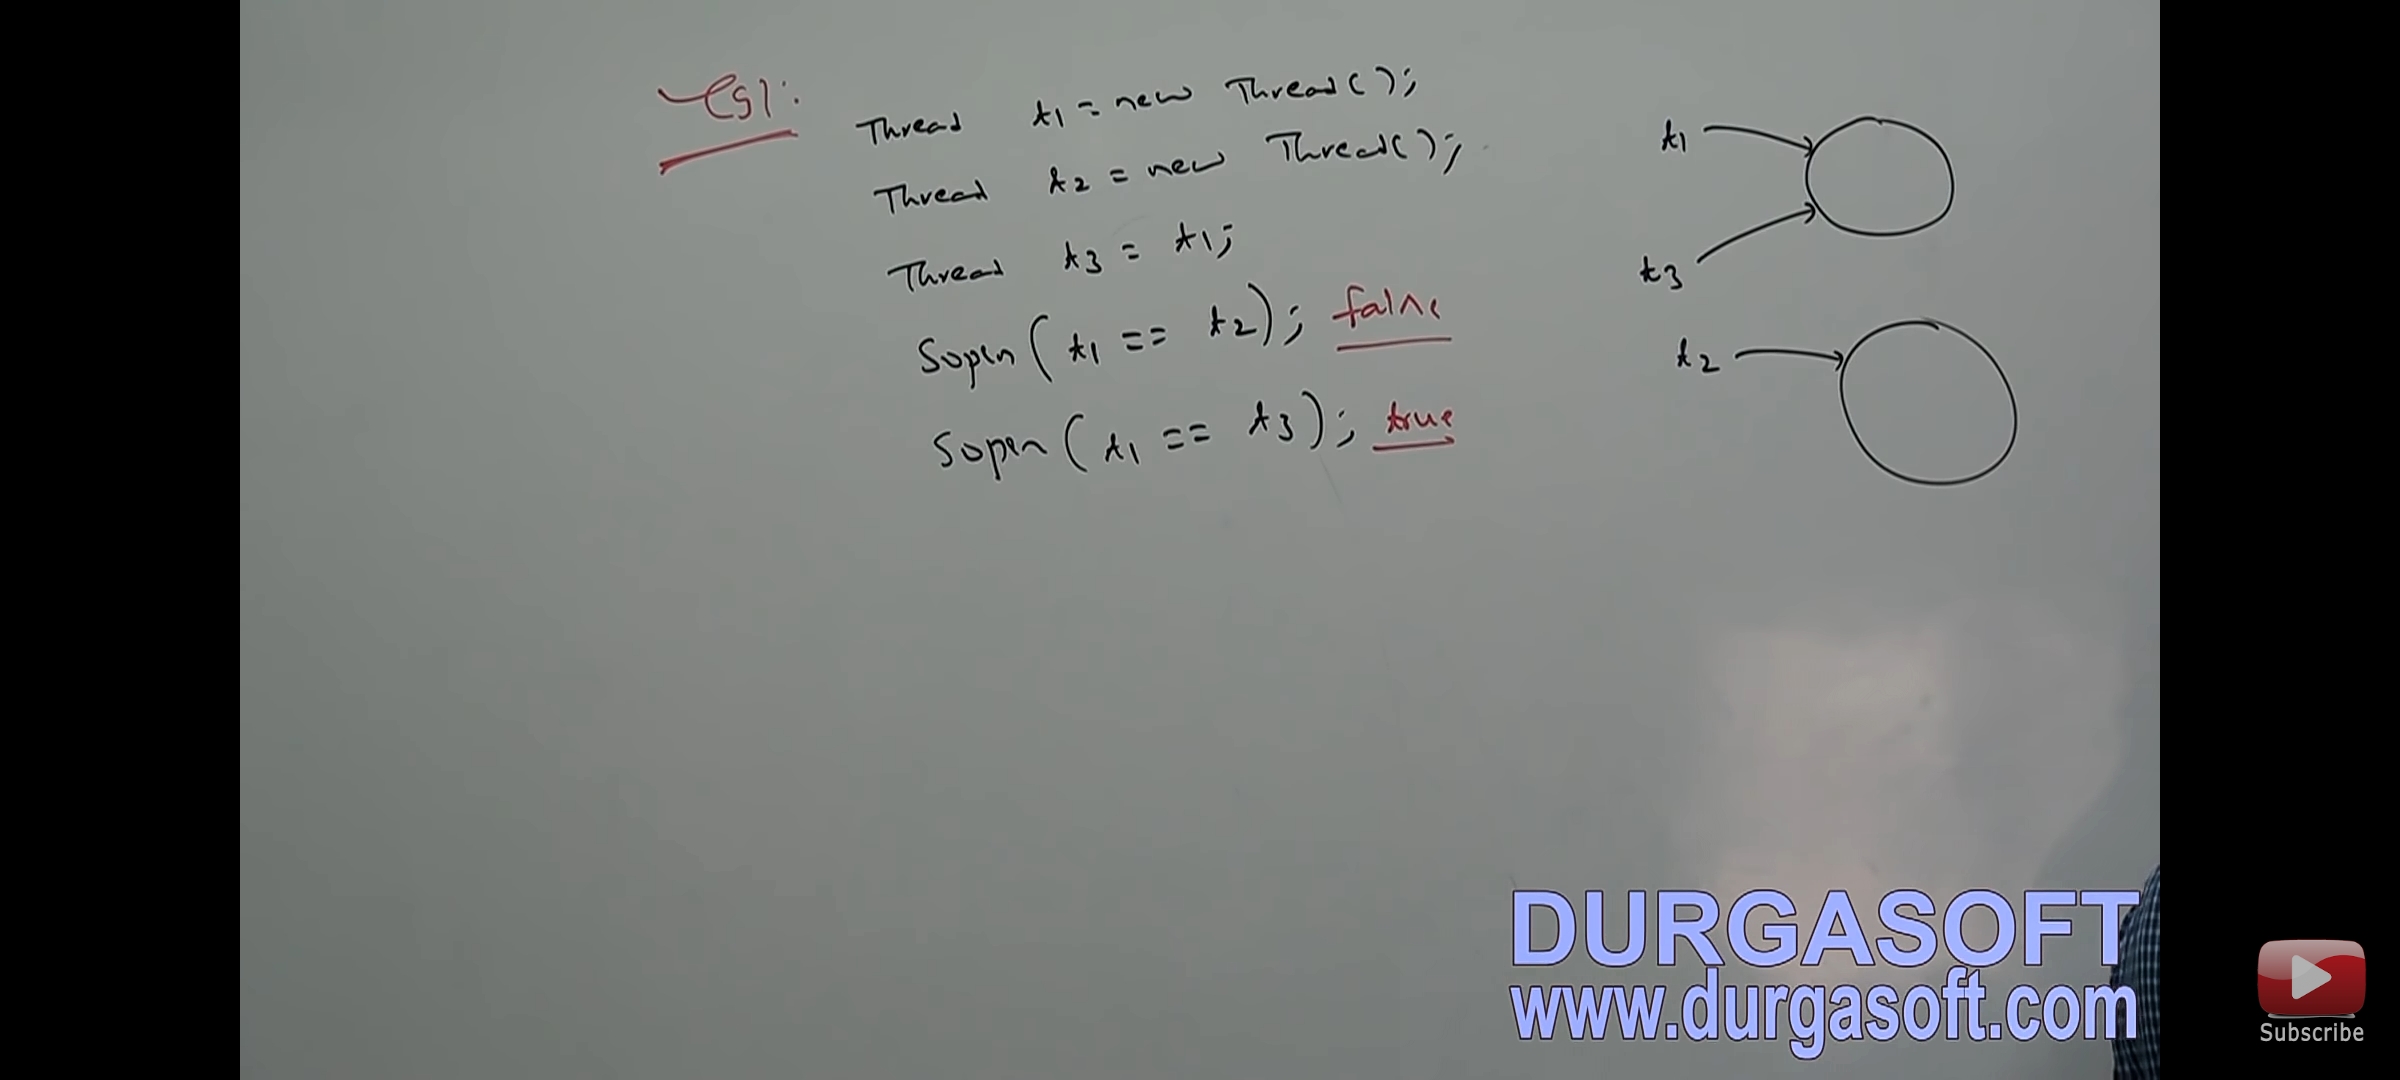 Eg1:
Thread t1 = new Thread();
Thread t2 = new Thread();
Thread t3 = t1;
Sopln(t1 == t2); false
Sopln(t1 == t3); true
t1
t3
t2
DURGASOFT
www.durgasoft.com
Subscribe